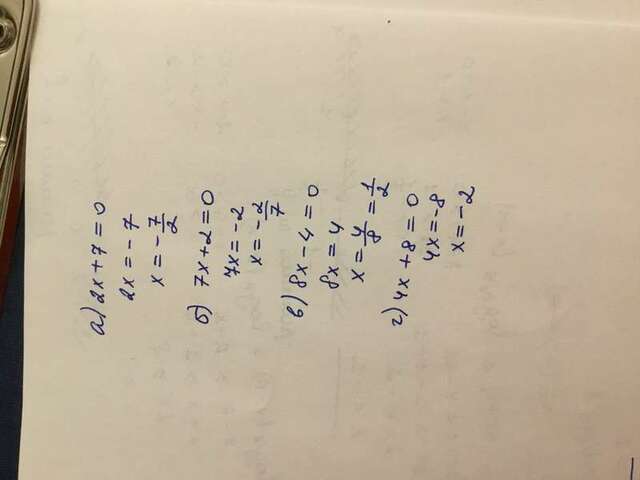 а) 2x + 7 = 0
2x = -7
x = -7/2
б) 7x + 2 = 0
7x = -2
x = -2/7
в) 8x - 4 = 0
8x = 4
x = 4/8 = 1/2
г) 4x + 8 = 0
4x = -8
x = -2